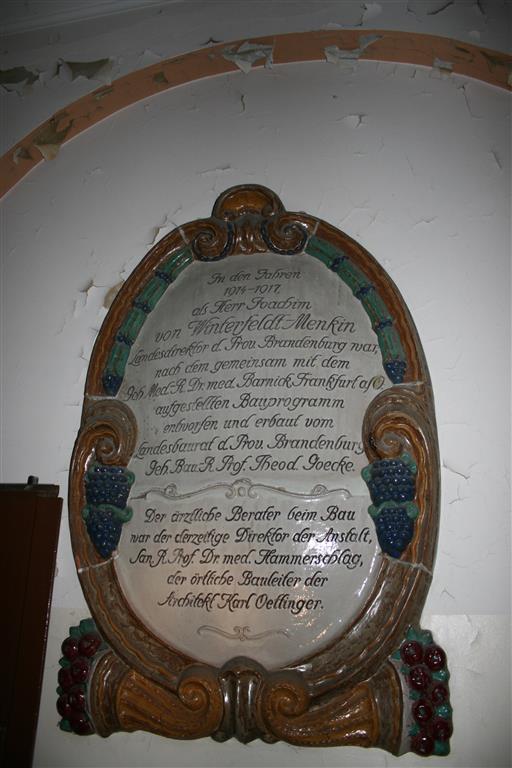 In den Jahren
1914-1917,
als Herr Joachim
von Winterfeldt-Menkin
Landesdirektor d. Prov. Brandenburg war,
nach dem gemeinsam mit dem
Geh. Med. R. Dr. med. Barnick Frankfurt a/O.
aufgestellten Bauprogramm
entworfen und erbaut vom
Landesbaurat d. Prov. Brandenburg
Geh. Bau. R. Prof. Theod. Goecke.
Der ärztliche Berater beim Bau
war der derzeitige Direktor der Anstalt,
San. R. Prof. Dr. med. Hammerschlag,
der örtliche Bauleiter der
Architekt Karl Oettinger.